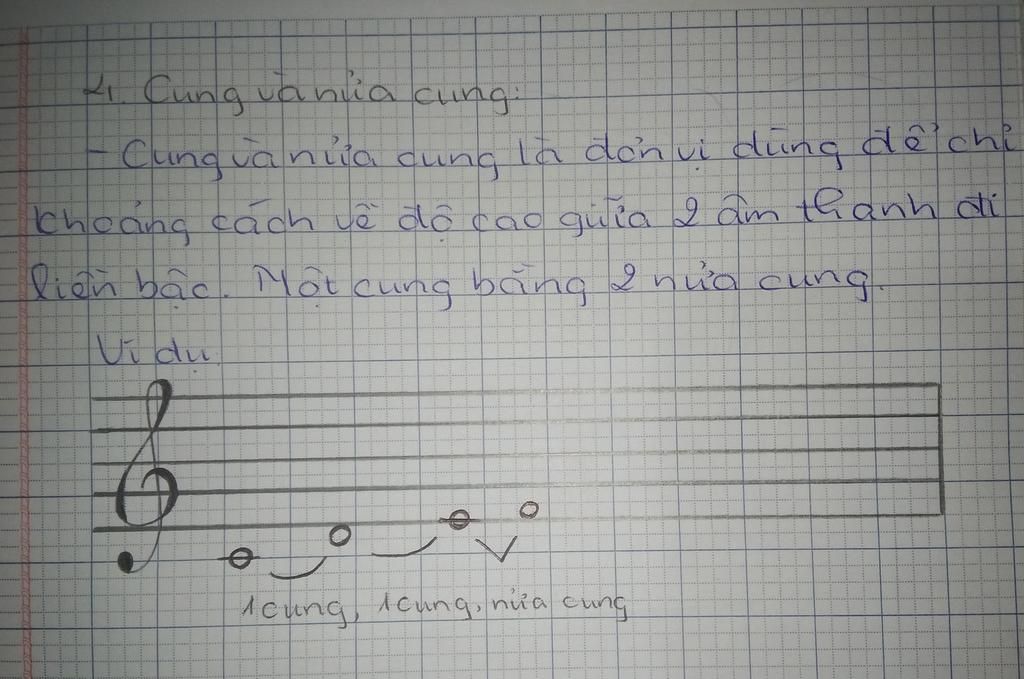 4. Cung và nửa cung:
- Cung và nửa cung là đơn vị dùng để chỉ
khoảng cách về độ cao giữa 2 âm thanh đi
liền bậc. Một cung bằng 2 nửa cung.
Ví dụ
1 cung, 1 cung, nửa cung